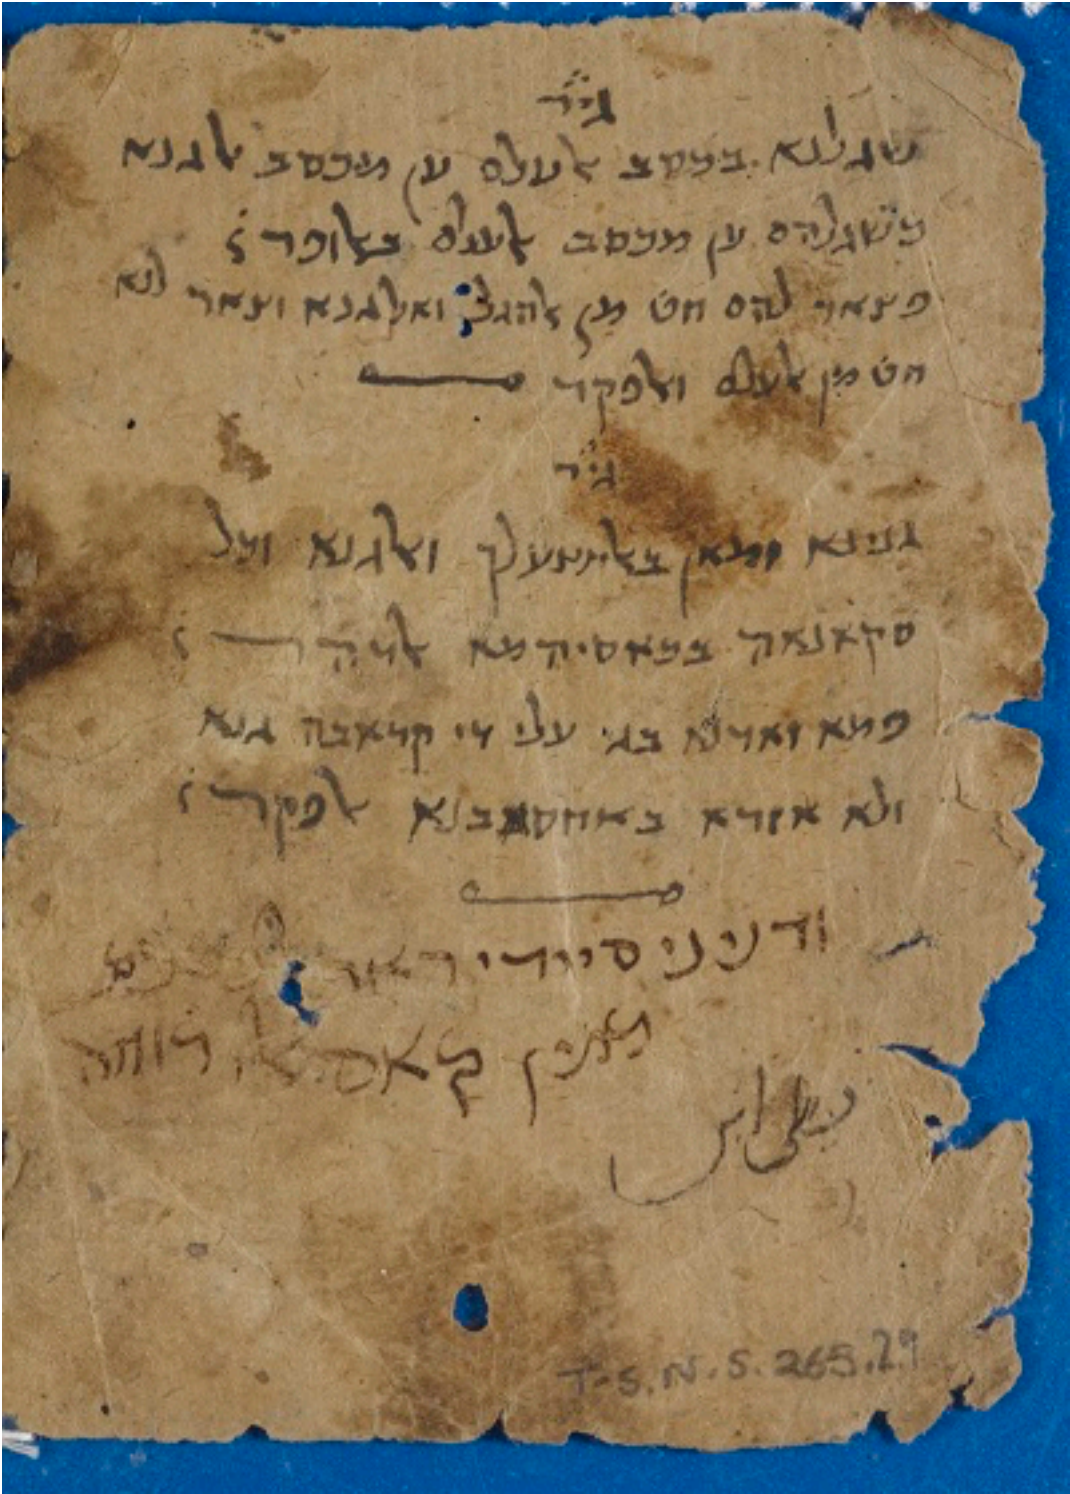 גיר
שגלנא בכסב אלעלם ען מכסב אלגנא
כשגלהם ען מכסב אלעלם באלופר
פצאר להם חט מן אלהגל ואלגנא וצאר לנא
חט מן אלעלם ואלפקר
גיר
גנינא זמאן ואלגנא וכל
סקאנאה בכאסיהמא אלדהר
פמא זאדנא בגי עלי די קראבה גנא
ולא אזרא באחסאבנא אלפקר
ודניני סיידי
כאס רוחה
T-S. N.S. 265.29